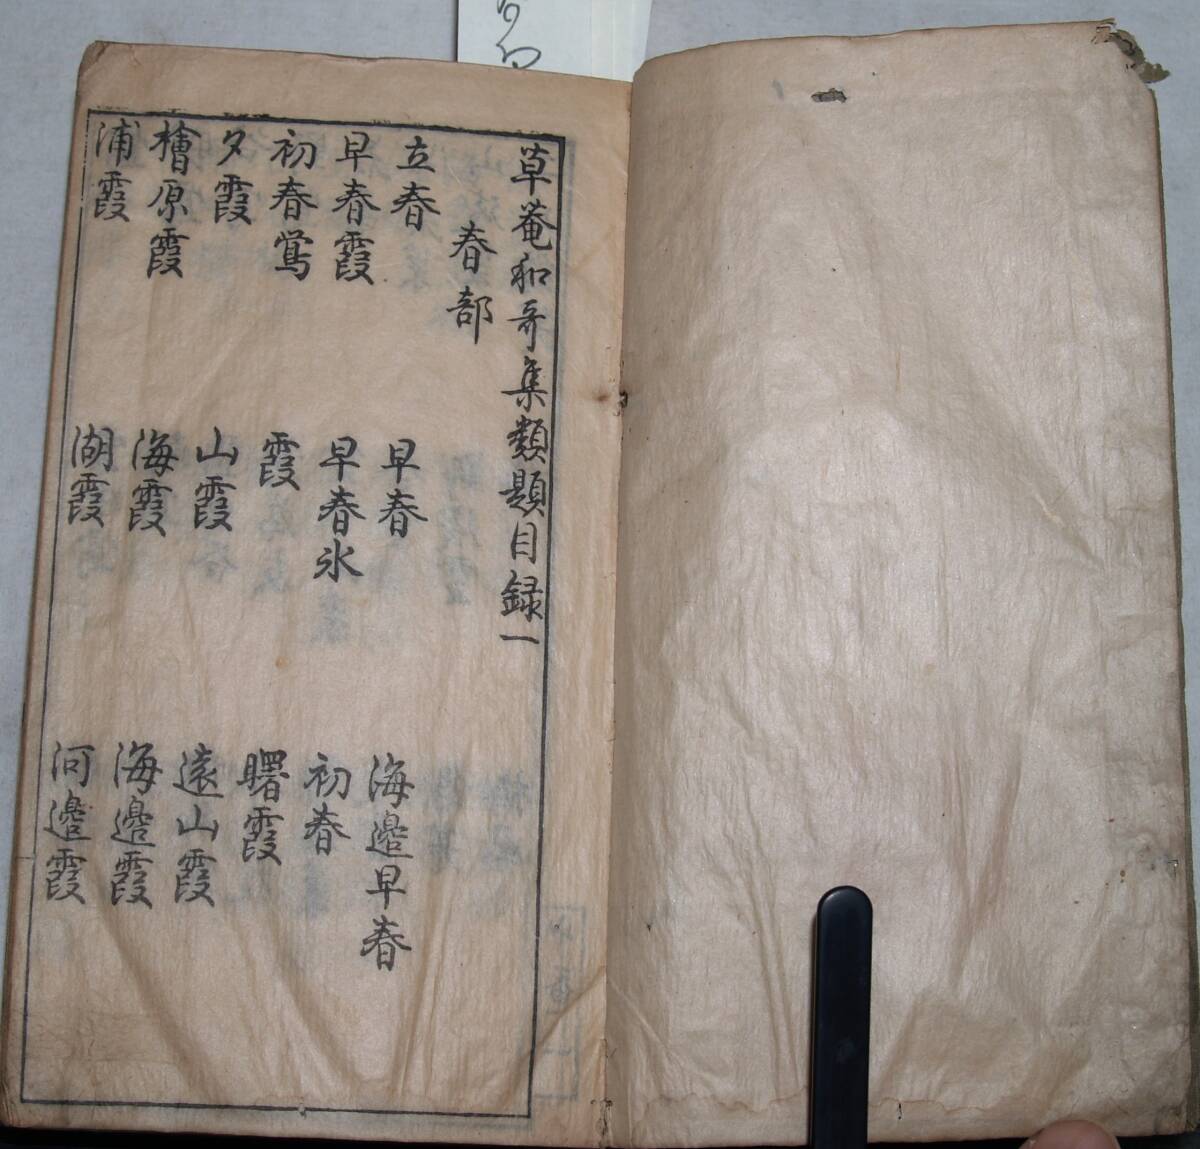 草菴和哥集類題目録一
春部
立春 早春 海邉早春
早春霞 早春氷 初春
初春鶯 霞 曙霞
夕霞 山霞 遠山霞
檜原霞 海霞 海邉霞
浦霞 湖霞 河邉霞